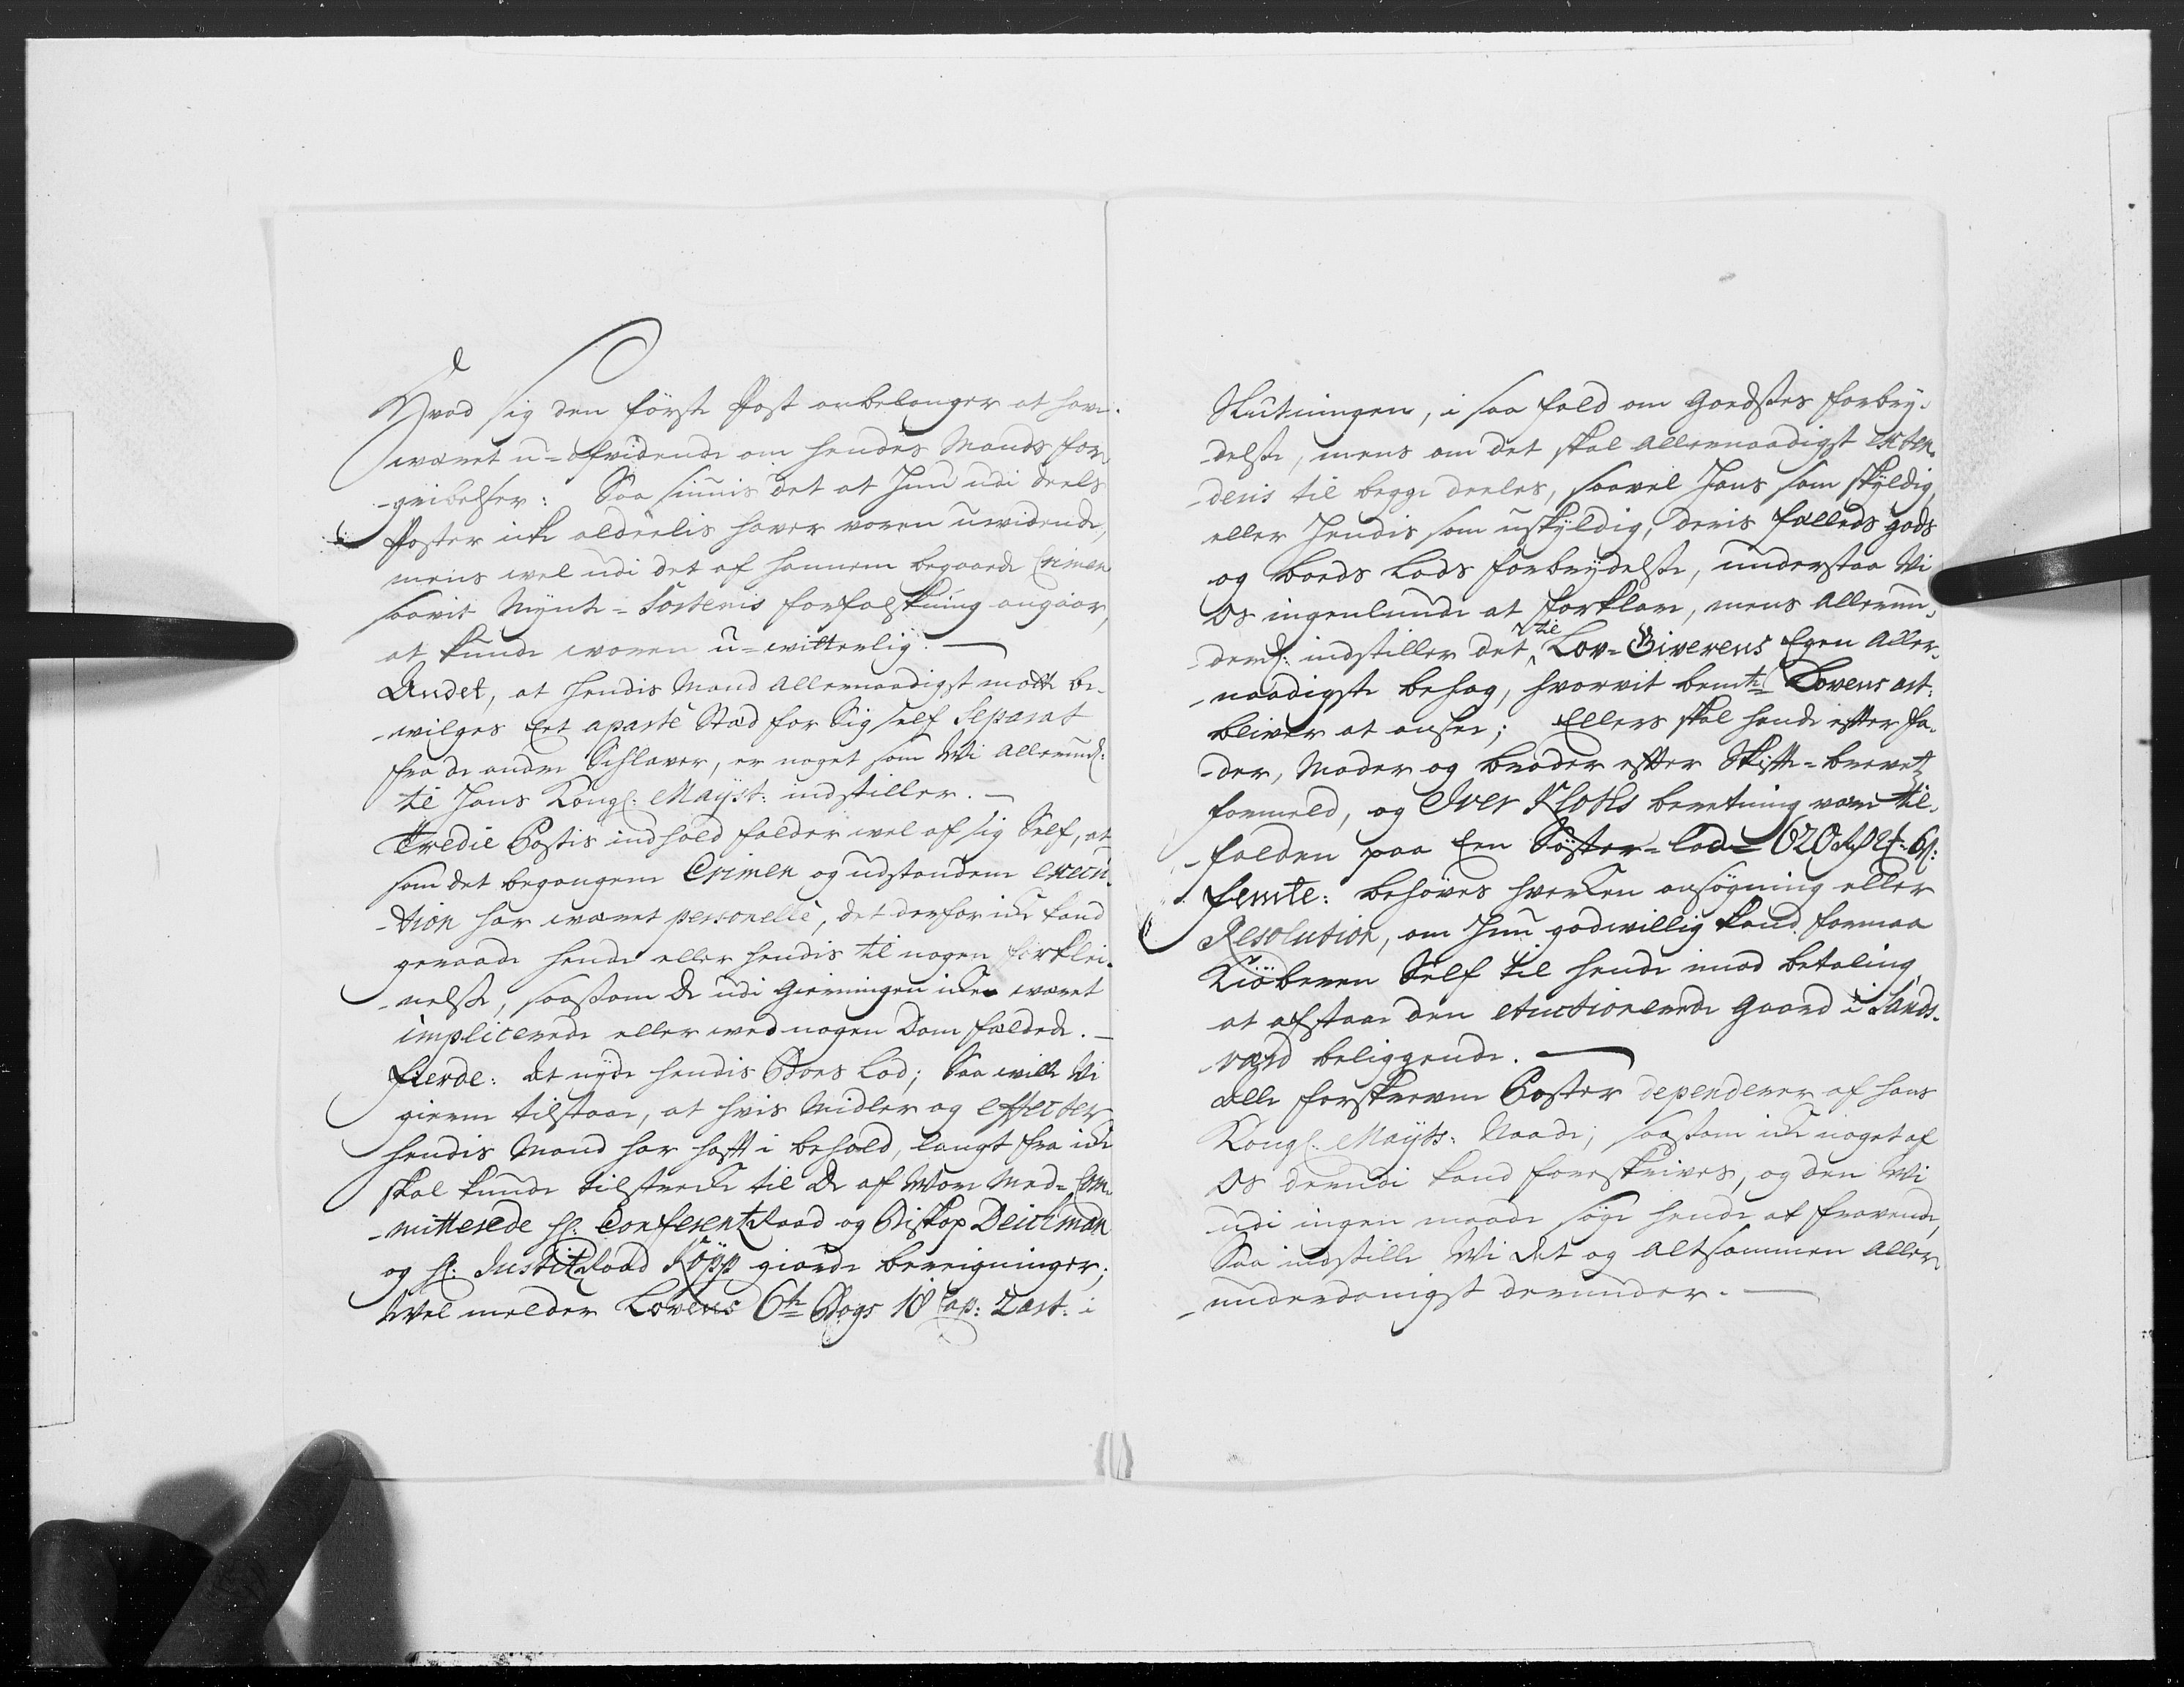 Hvad sig den förste Post anbelanger at have
været u-afvidende om hendes Mands for-
-gribelser: Saa siunis det at Hun udi deels
Poster icke alderlis haver voren uvidende,
mens vel udi det af hannem begaaede Crimen
saavit Mynte-Sortenis forfalskning angaar,
at kunde voren u-vitterlig. —
Andet, at hendis Mand Allernaadigst motte be-
-vilges Eet aparte Stæd for Sig self Separat
fra de andre Schlaver, er noget som Wi Allerund:
til Hans Kongl: Mayst: indstiller. —
Tredie Postis indhold falder vel af sig Self, at
som det begangene Crimen og udstandene execu-
-tion har været personelle, det derfor icke kand
geraade hende eller hendis til nogen forklei-
-nelse, saasom De udi Gierningen icke været
implicerede eller ved nogen Dom fældede. —
Fierde: At nyde hendis Boes Lod; Saa ville Vi
gierne tilstaae, at hvis Midler og effecter
hendis Mand har hafft i behold, langt fra icke
skal kunde tilstrecke til De af Wore Med-Com-
-mitterede Hr: ConferentzRaad og Biskop Deichman
og Hr: JustitzRaad Röyp giorde beregninger;
Wel melder Lovens 6te Bogs 18 Cap: 2 art: i
Slutningen, i saa fald om Godsets forbry-
-delse, mens om det skal Allernaadigst exten-
-deris til begge deeles, saavel Hans som skyldig,
eller Hendis som uskyldig, deris fælleds gods
og boeds Lods forbrydelse, understaa Vi
Os ingenlunde at forklare, mens Allerun-
-derd: indstiller det til Lov-Giverens Egen Aller-
-naadigste behag, hvorvit bemte Lovens art:
bliver at ansee; Ellers skal hende efter Fa-
-der, Moder og broder effter Skiffte-brevets
formeld, og Iver Kloths beretning være til-
-falden paa Een Söster-lod 620 Rdr
Femte: behöves hvercken ansögning eller
Resolution, om Hun godvillig kand formaa
Kiöberen Self til hende imod betaling,
at afstaae den Auctionerede Gaard i Sands-
værd beliggende. —
Alle forskrevne Poster dependerer af hans
Kongl: Mayts: Naade, saasom icke noget af
Os derudi kand foreskrives, og den Wi
udi ingen maade söge hende at fravende,
Saa indstille Wi det og altsammen Aller-
-underdanigst derunder. —